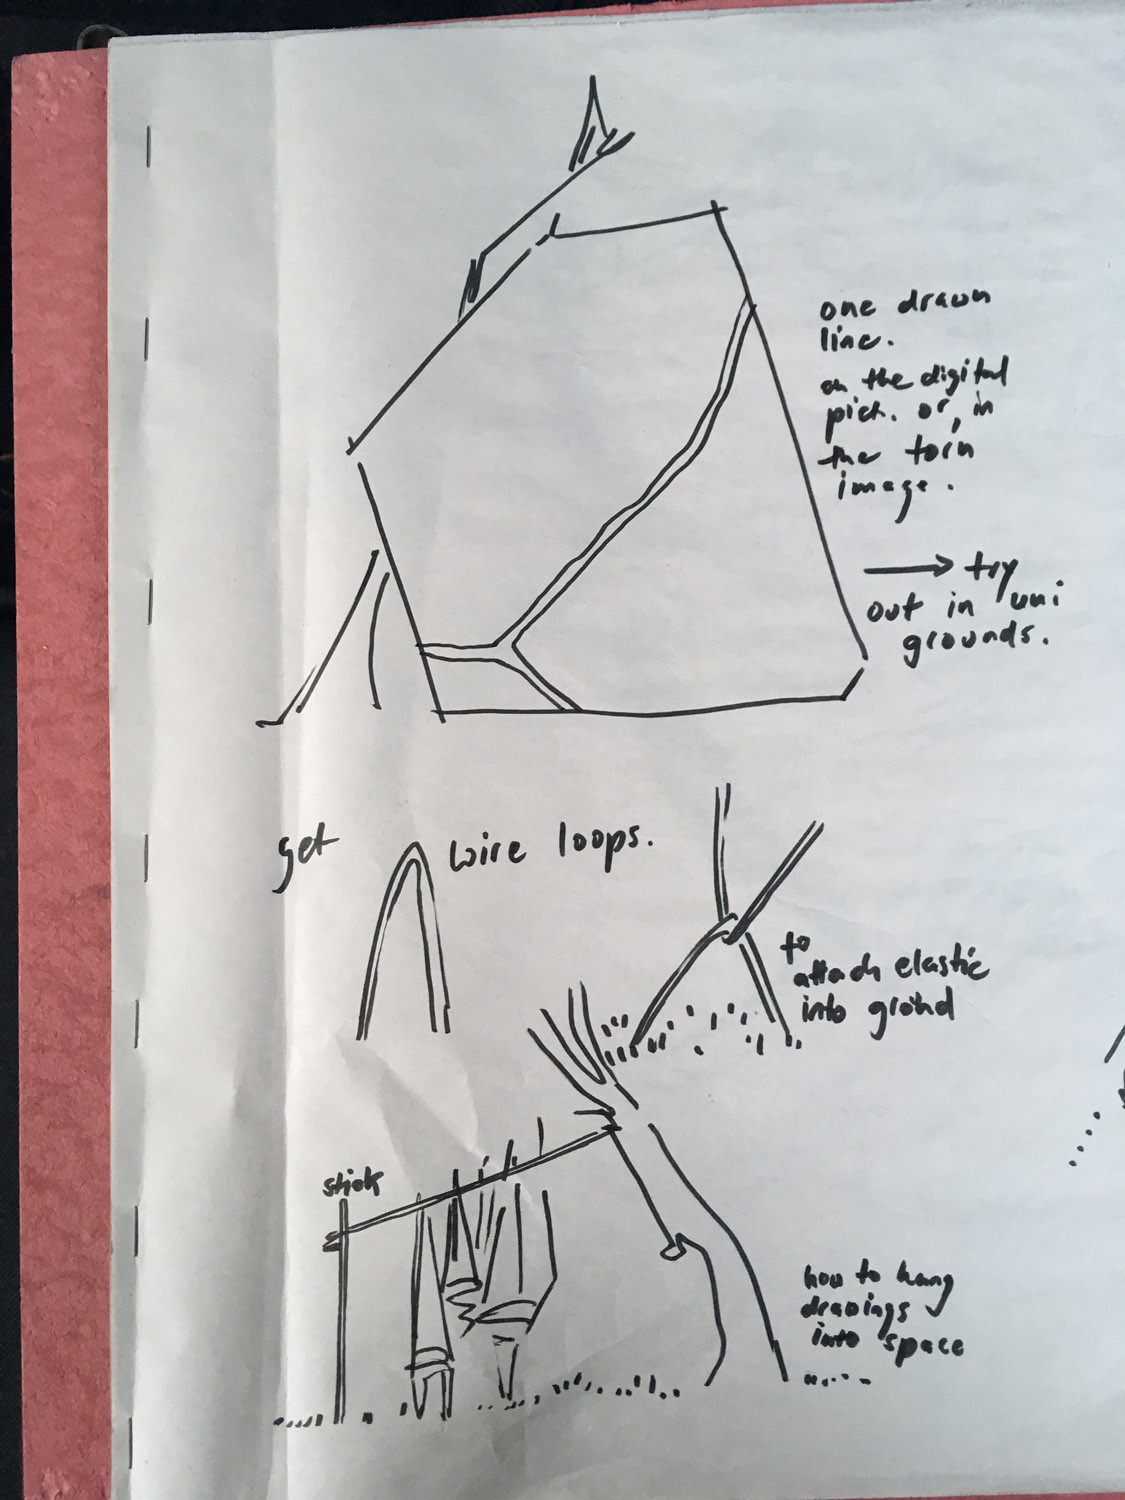 one drawn
line.
on the digital
pict. or, in
the torn
image.
try
out in uni
grounds.
get wire loops.
to
attach elastic
into ground
stick
how to hang
drawings
into space